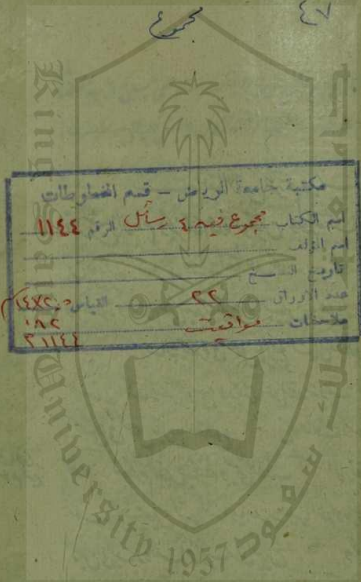 ٤٧
مجموع
مكتبة جامعة الرياض - قسم المخطوطات
اسم الكتاب مجموع فيه ٤ رسائل الرقم ١١٤٤
اسم المؤلف
تاريخ النسخ
عدد الأوراق ٢٢ القياس
ملاحظات مواقيت ١٨٢
٢١١٤٤
King Saud University
1957
جامعة الملك سعود